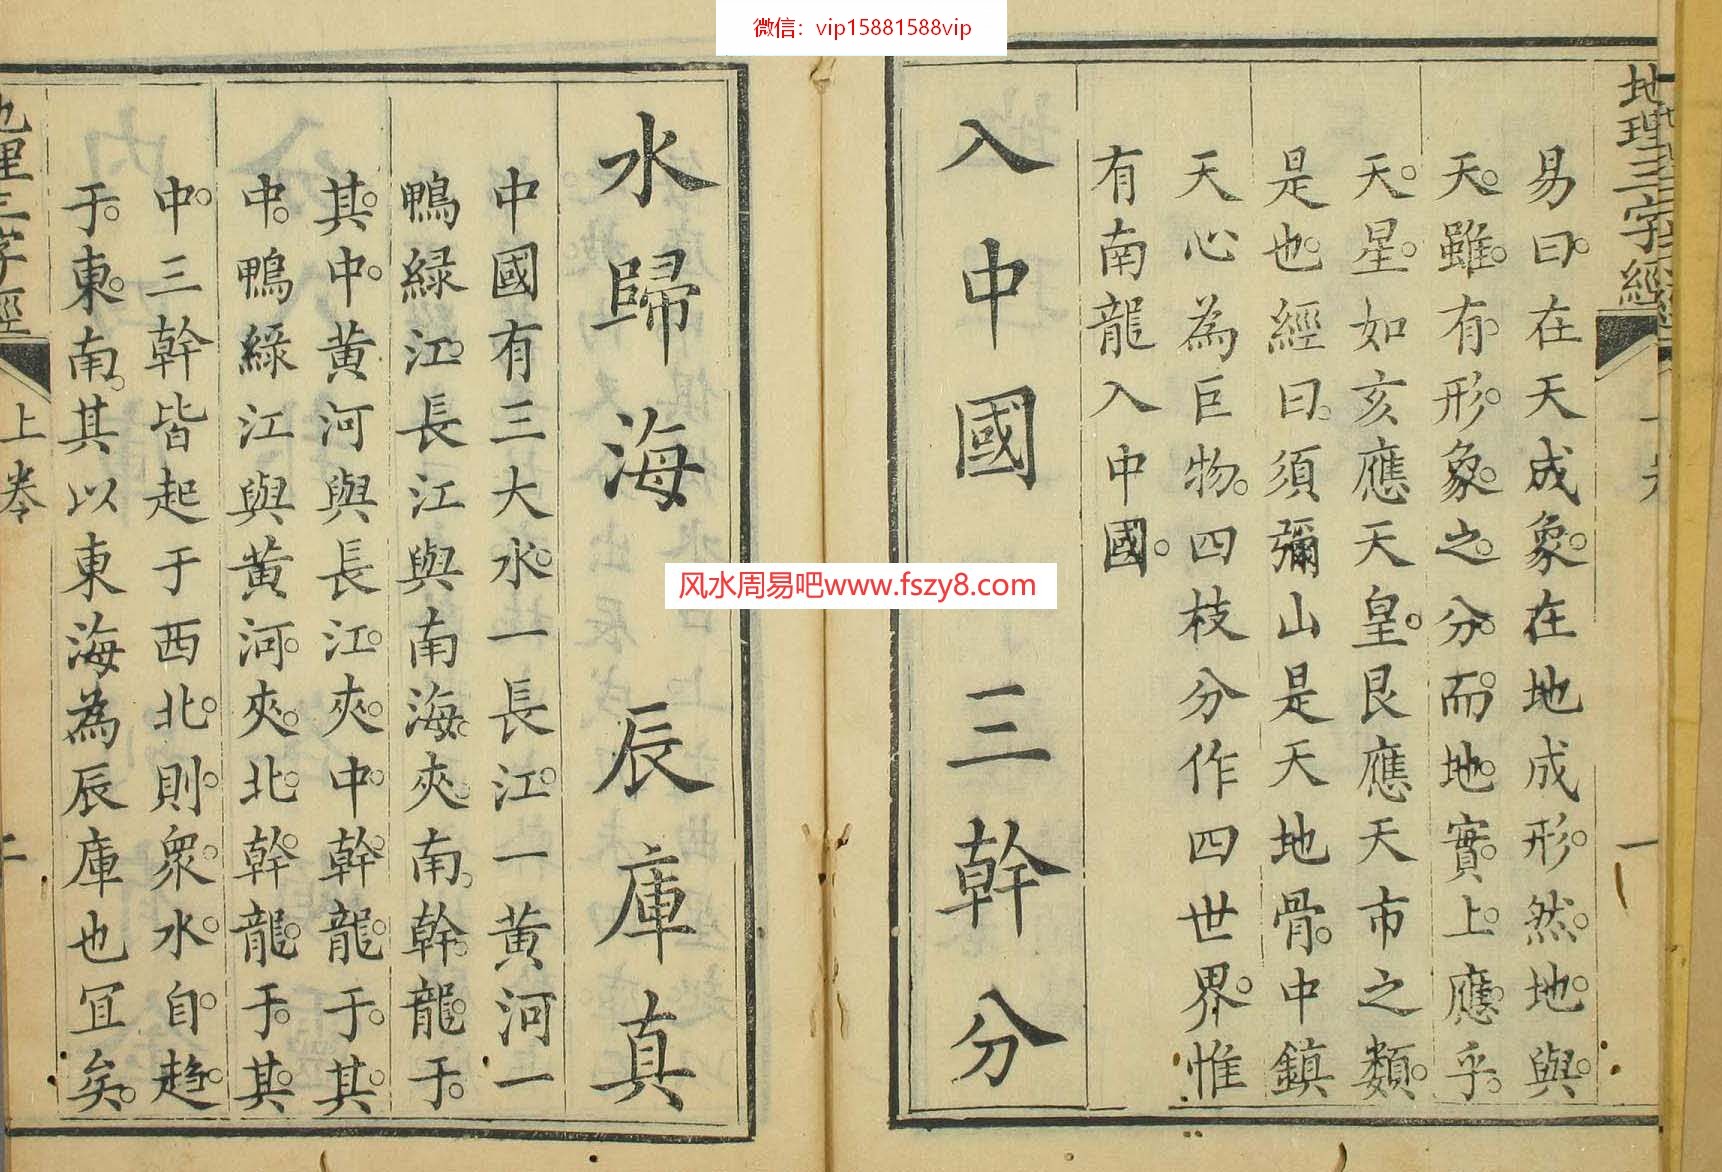 微信：vip15881588vip
地理三字經
易曰在天成象在地成形然地與
天雖有形象之分而地實上應乎
天星如亥應天皇艮應天市之類
是也經曰須彌山是天地骨中鎮
天心為巨物四枝分作四世界惟
有南龍入中國
入中國三幹分
水歸海辰庫真
中國有三大水一長江一黄河一
鴨緑江長江與南海夾南幹龍于
其中黄河與長江夾中幹龍于其
中鴨綠江與黄河夾北幹龍于其
中三幹皆起于西北則衆水自趋
于東南其以東海為辰庫也宜矣
地理三字經
上卷
风水周易吧www.fszy8.com